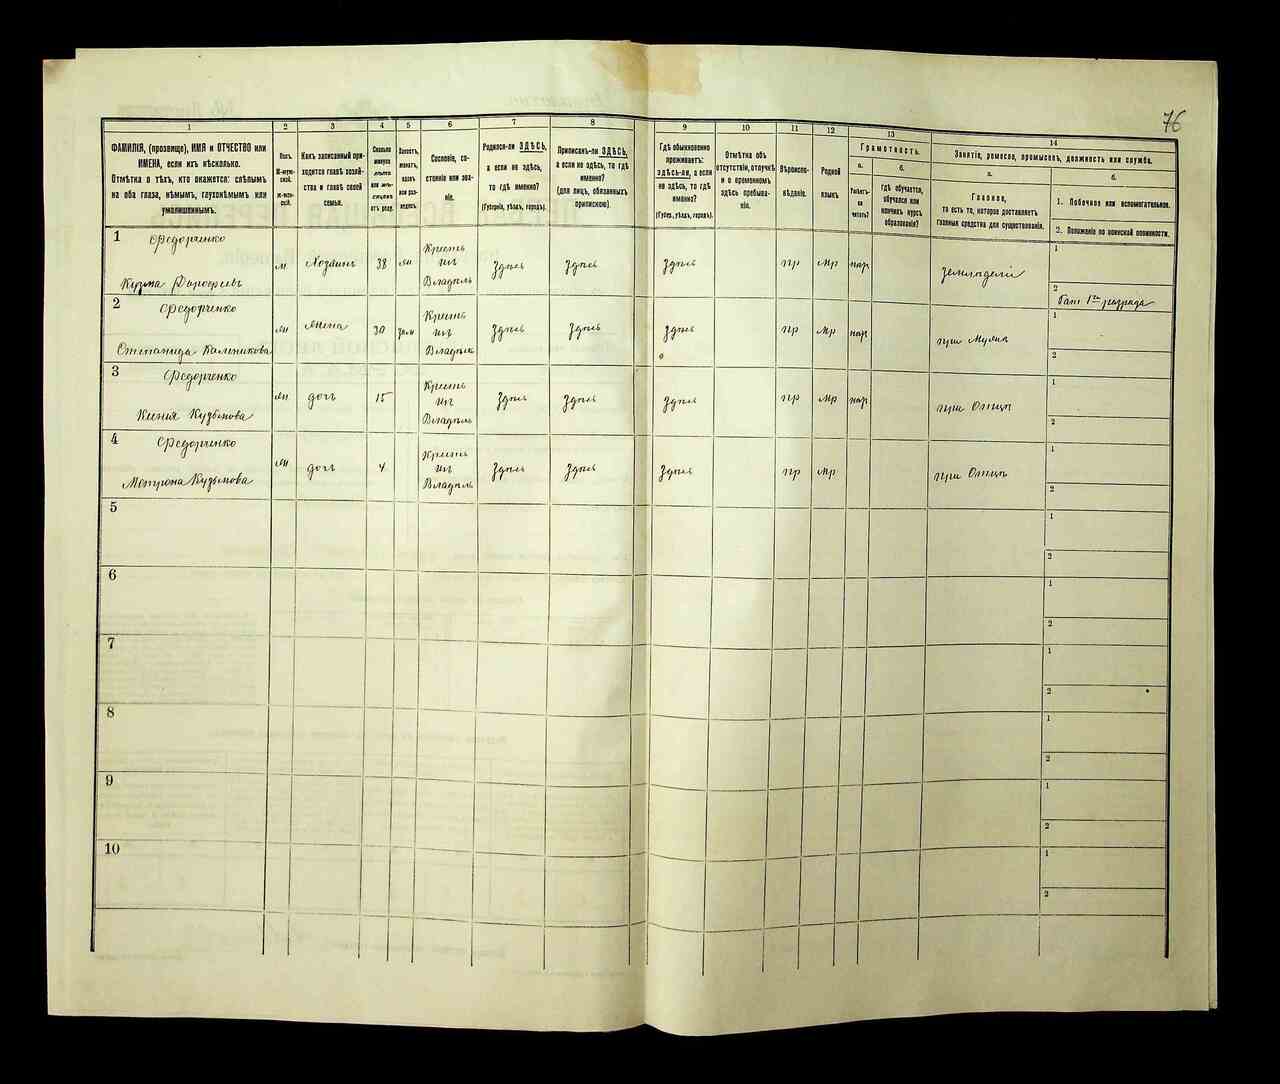 76
1
2
3
4
5
6
7
8
9
10
11
12
13
14
ФАМИЛІЯ, (прозвище), ИМЯ и ОТЧЕСТВО или
ИМЕНА, если ихъ нѣсколько.
Отмѣтка о тѣхъ, кто окажется: слѣпымъ
на оба глаза, нѣмымъ, глухонѣмымъ или
умалишеннымъ.
Полъ.
М-мужской.
Ж-женскій.
Какъ записанный при-
ходится главѣ хозяй-
ства и главѣ своей
семьи.
Сколько
минуло
лѣтъ
или мѣ-
сяцевъ
отъ роду.
Холостъ,
женатъ,
вдовъ
или раз-
веденъ.
Сословіе, со-
стояніе или зва-
ніе.
Родился-ли ЗДѢСЬ,
а если не здѣсь,
то гдѣ именно?
(Губернія, уѣздъ, городъ).
Приписанъ-ли ЗДѢСЬ,
а если не здѣсь, то гдѣ
именно?
(для лицъ, обязанныхъ
припискою).
Гдѣ обыкновенно
проживаетъ:
здѣсь-ли, а если
не здѣсь, то гдѣ
именно?
(Губер., уѣздъ, городъ).
Отмѣтка объ
отсутствіи, отлучкѣ
и о временномъ
здѣсь пребыва-
ніи.
Вѣроиспо-
вѣданіе.
Родной
языкъ.
Грамотность.
а.
Умѣетъ-
ли
читать?
б.
Гдѣ обучается,
обучался или
кончилъ курсъ
образованія?
Занятіе, ремесло, промыселъ, должность или служба.
а.
Главное,
то есть то, которое доставляетъ
главныя средства для существованія.
б.
1. Побочное или вспомогательное.
2. Положеніе по воинской повинности.
1 Федорченко
Кузма Дорофеевъ
м Хозяинъ 38 жн Крестьянинъ Владѣль Здѣсь Здѣсь Здѣсь пр мр нар земледѣліе
1
2 Рат 1го разряда
2 Федорченко
Степанида Калѣникова
жн жена 30 зам Здѣсь Здѣсь Здѣсь пр мр нар при Мужѣ
1
2
3 Федорченко
Ксенія Кузьмова
жн дочь 15 Здѣсь Здѣсь Здѣсь пр мр нар при Отцѣ
1
2
4 Федорченко
Мотрона Кузьмова
жн дочь 4 Здѣсь Здѣсь Здѣсь пр мр при Отцѣ
1
2
5
1
2
6
1
2
7
1
2
8
1
2
9
1
2
10
1
2